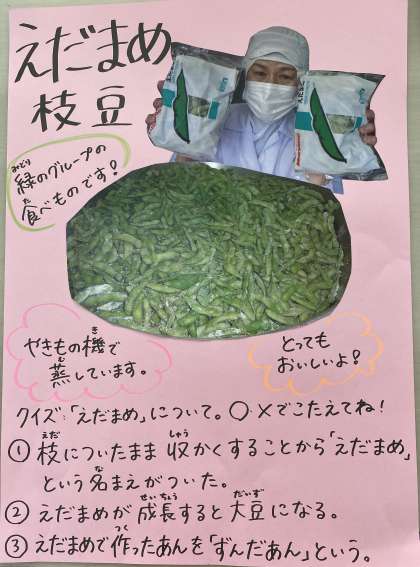 えだまめ
枝豆
緑のグループの
みどり
食べものです！
た
やきもの機で
き
蒸しています。
む
とっても
おいしいよ！
クイズ：「えだまめ」について。○・×でこたえてね！
① 枝についたまま 収かくすることから「えだまめ」
えだ しゅう
という名まえがついた。
な
② えだまめが 成長すると大豆になる。
せいちょう だいず
③ えだまめで作ったあんを「ずんだあん」という。
つく